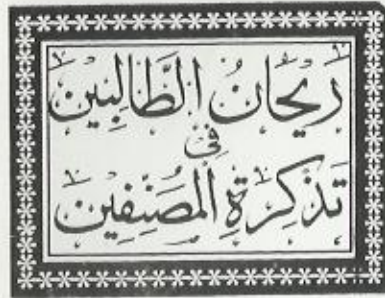 ريحَانُ الطَّالِبِين
فِي
تَذكِرَةِ المُصَنِّفِين